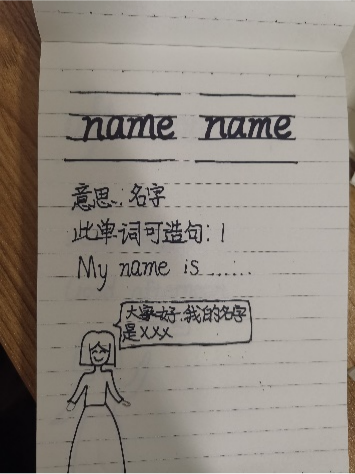 name name
意思:名字
此单词可造句:1
My name is ......
大家好 我的名字
是XXX